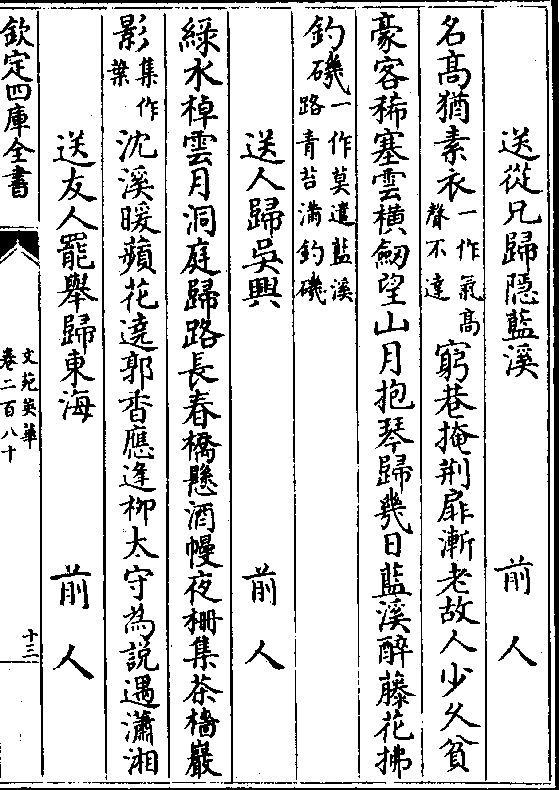 送從兄歸隱藍溪　前人
名高猶素衣一作氣高聲不達窮巷掩荆扉漸老故人少久貧
豪客稀塞雲橫劒望山月抱琴歸幾日藍溪醉藤花拂
釣磯一作莫遣藍溪路青苔滿釣磯
送人歸吳興　前人
綠水棹雲月洞庭歸路長春橋懸酒幔夜柵集茶檣巖
影集作葉沈溪暖蘋花遶郭香應逢栁太守為說過瀟湘
送友人罷舉歸東海　前人
欽定四庫全書
文苑英華
卷二百八十
十三